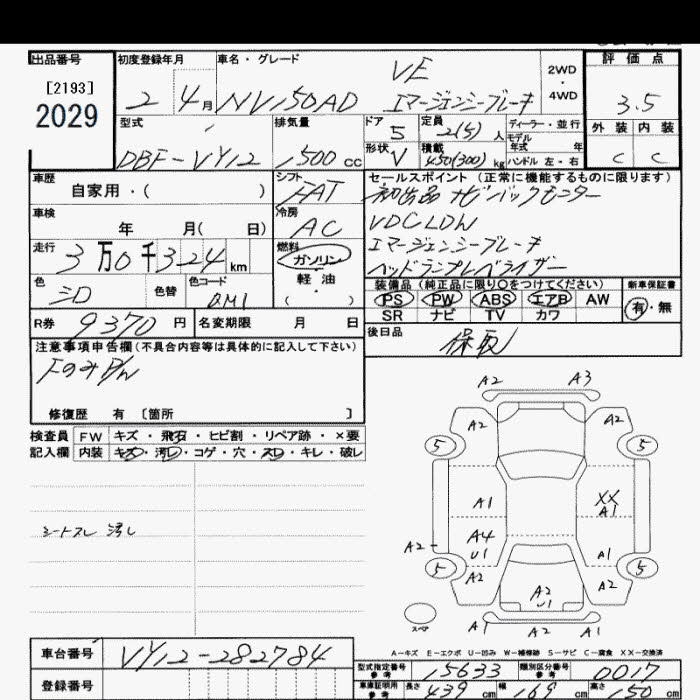 出品番号
[2193]
2029
初度登録年月
2 4月
車名・グレード
VE
NV150AD エマージェンシーブレーキ
2WD
・
4WD
評価点
3.5
外装 内装
C C
型式
DBF-VY12
排気量
1,500cc
ドア
5
形状
V
定員
2(5)人
積載
450(300)kg
ディーラー・並行
モデル
年式 年
ハンドル 左・右
車歴
自家用・( )
シフト
FAT
セールスポイント(正常に機能するものに限ります)
初出品 ナビバックモニター
VDC LDW
エマージェンシーブレーキ
ヘッドランプレベライザー
車検
年 月( 日)
冷房
AC
走行
3万0千324km
燃料
ガソリン
軽・油
( )
色
シロ
色替
色コード
QM1
装備品(純正品に限り○をつけてください)
PS PW ABS エアB AW
SR ナビ TV カワ
新車保証書
有・無
R券 9370円
名変期限 月 日
後日品
保取
注意事項申告欄(不具合内容等は具体的に記入して下さい)
Fのみ P/W
修復歴 有 〔箇所 〕
検査員
記入欄
FW キズ・飛石・ヒビ割・リペア跡・×要
内装 キズ・汚レ・コゲ・穴・スレ・キレ・破レ
シートスレ 汚レ
A2 A3
A2 A2
5 5
A1 XX
A1
A4
U1
A2
A1
5 5
A2 A2
A2
U1
スペア
A1 A2 A1
A-キズ E-エクボ U-凹み W-補修跡 S-サビ C-腐食 XX-交換済
車台番号 VY12-282784
登録番号
型式指定番号
参考
15633
類別区分番号
参考
0017
車庫証明用
参考
長さ 439cm 幅 169cm 高さ 150cm